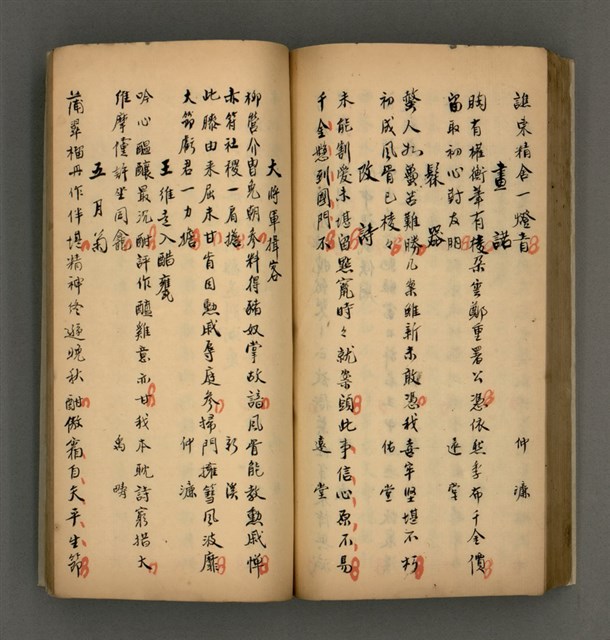 譙東精舍一燈音　仲濂
畫諾
胸有權衡筆有稜朵雲鄭重署公憑依然季布千金價
留取初心對友朋　逐堂
髹器
鰲人如蠶苦難勝几案維新未敢憑我喜牢堅堪不朽
初成風骨已稜々　佑堂
改詩
未能割愛未堪留點竄時々就案頭此事信心原不易
千金懸到國門不　遠堂
大將軍揖客
柳營介冑兕朝參料得豬奴掌故諳風骨能教勳戚憚
赤符社稷一肩擔　新溪
此膝由來屈未甘肯因勳戚辱庭參掃門擁篲風波靡
大節虧君一力擔　仲濂
王維走入醋甕
吟心醞釀最沉酣評作醯雞意亦甘我本耽詩窮措大
維摩僅許坐同龕　禹疇
五月菊
蒲翠榴丹作伴堪精神終遜晚秋酣傲霜自大平生節